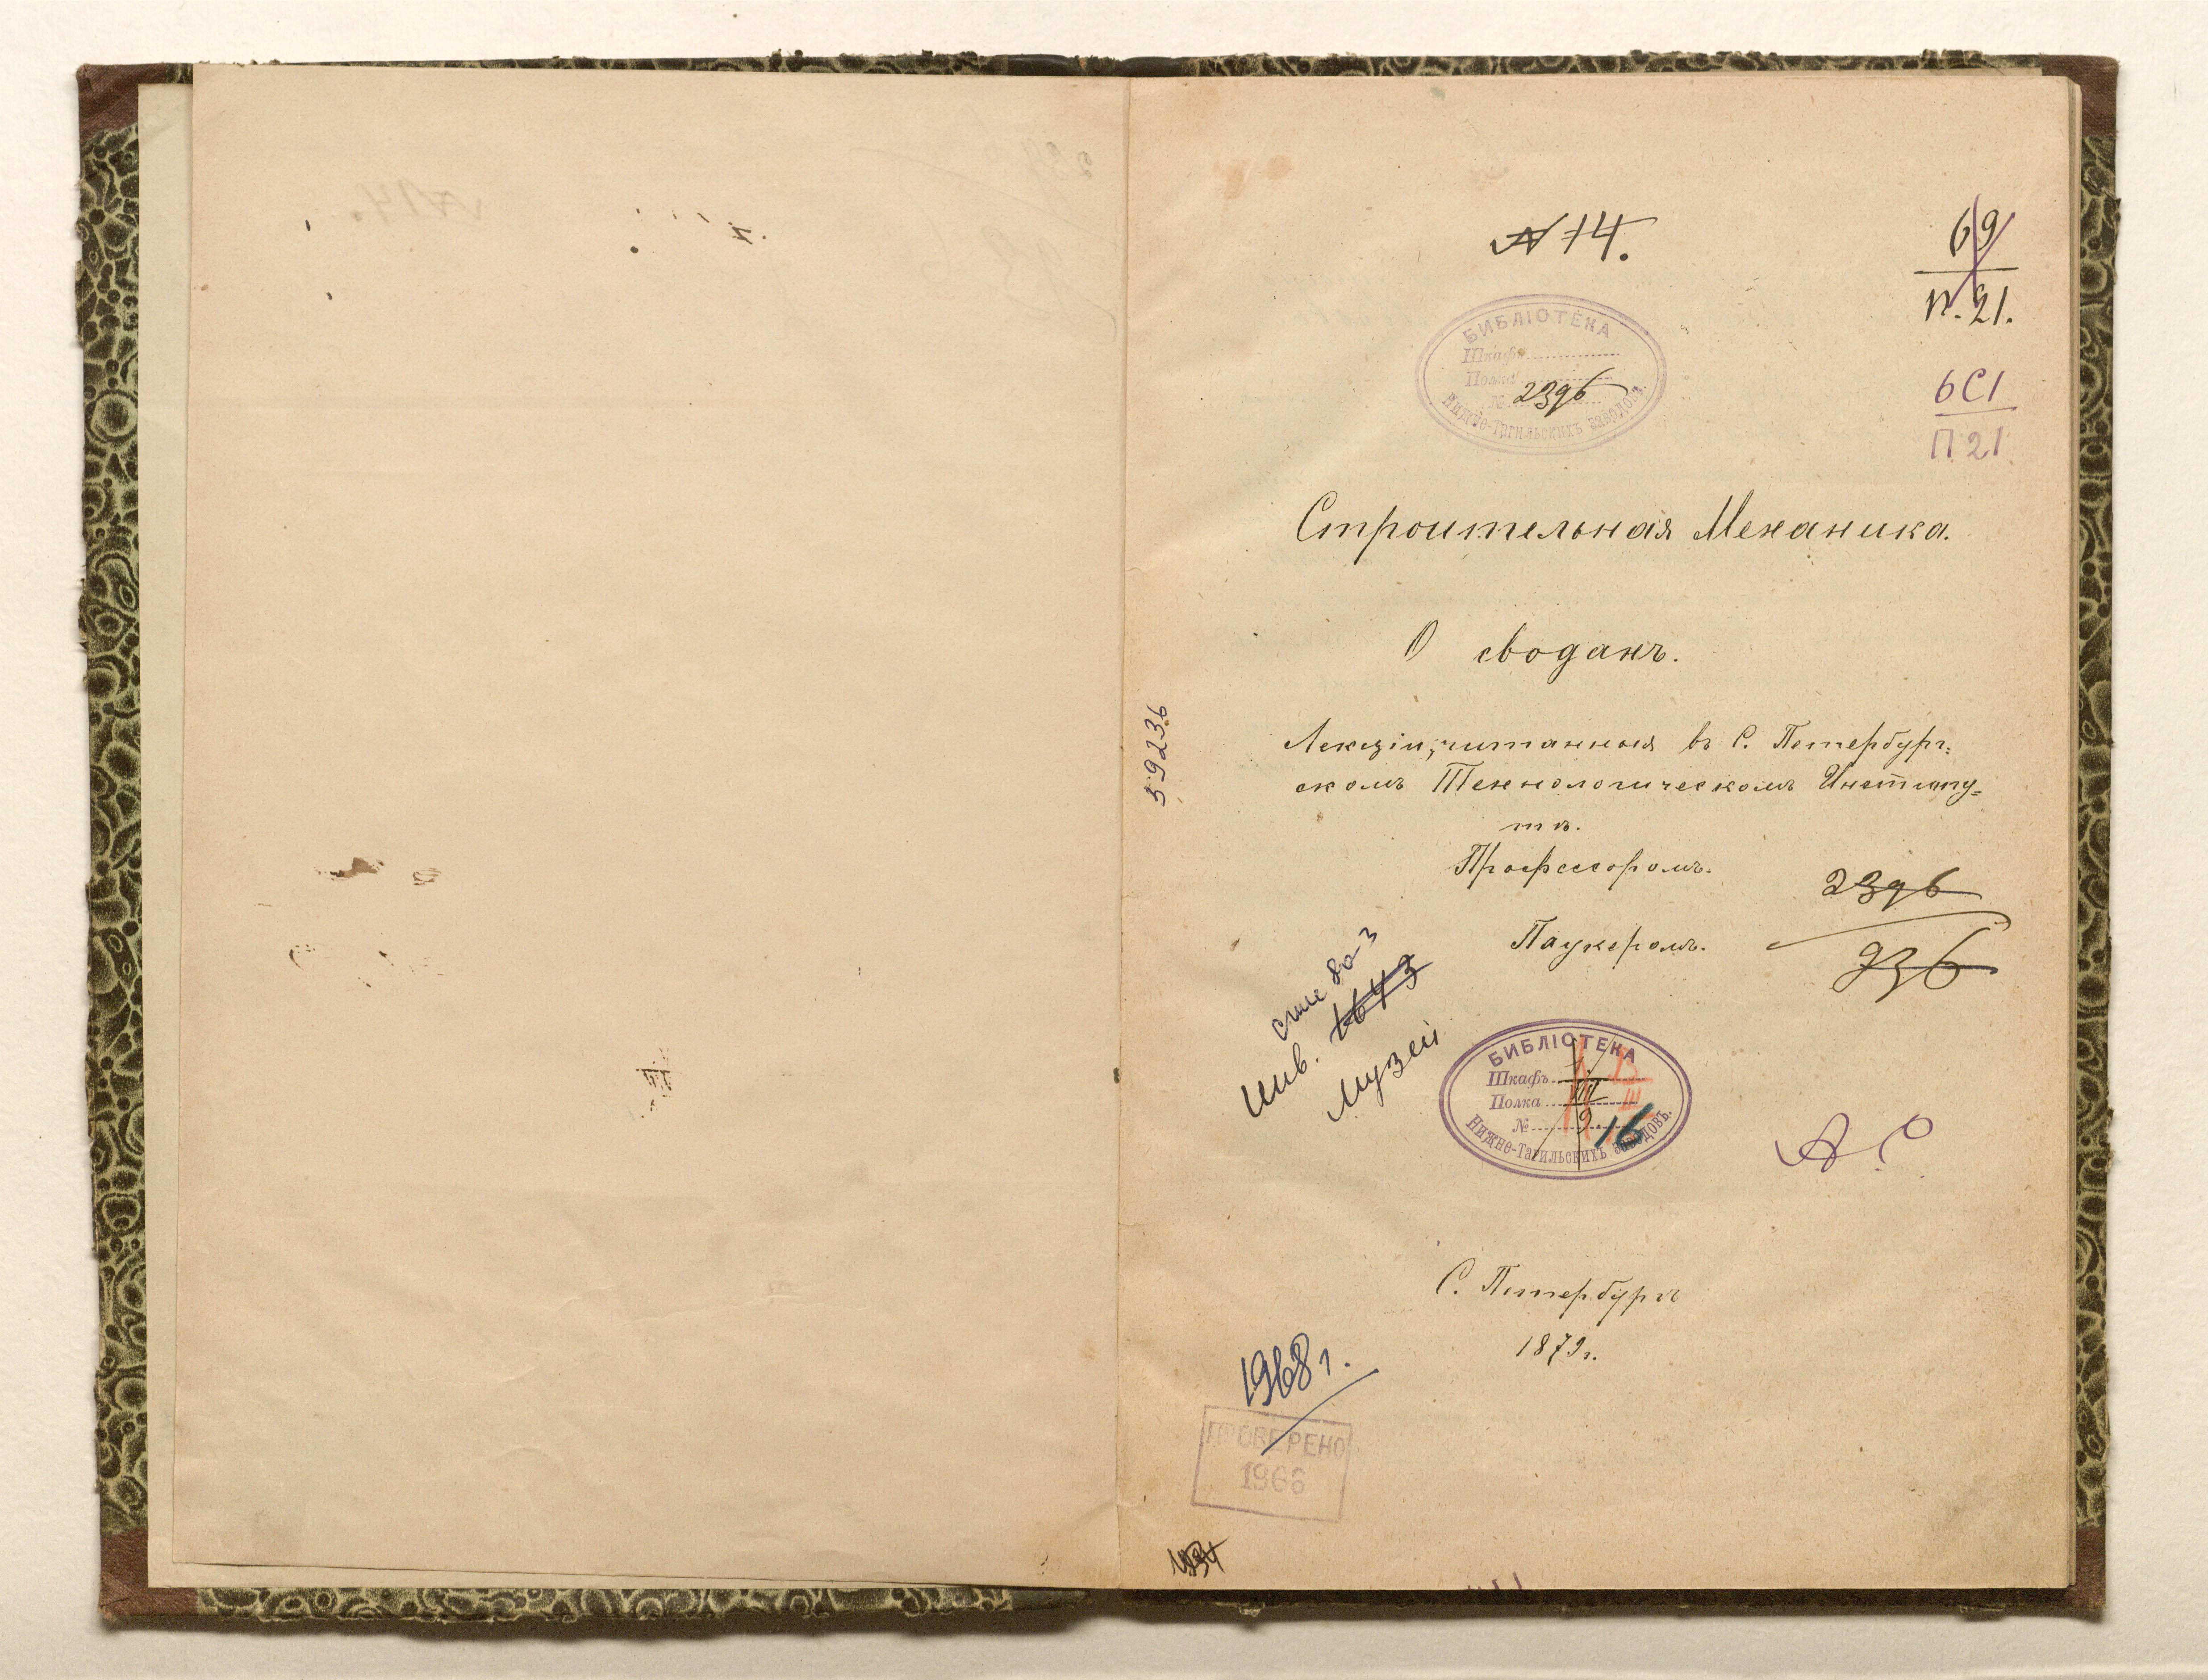 № 14.
69
П. 21.
БИБЛІОТЕКА
Шкафъ
Полка
№ 2396
Нижне-Тагильскихъ заводовъ.
6С1
П 21
Строительная Механика.
О сводахъ.
Лекціи, читанныя въ С. Петербург=
скомъ Технологическомъ Институ=
тѣ.
Профессоромъ.
Паукеромъ.
59236
2396
936
инв. 1643
музей
БИБЛІОТЕКА
Шкафъ
Полка III
№ 16
Нижне-Тагильскихъ заводовъ.
С. Петербургъ
1879г.
1968 г.
ПРОВЕРЕНО
1966